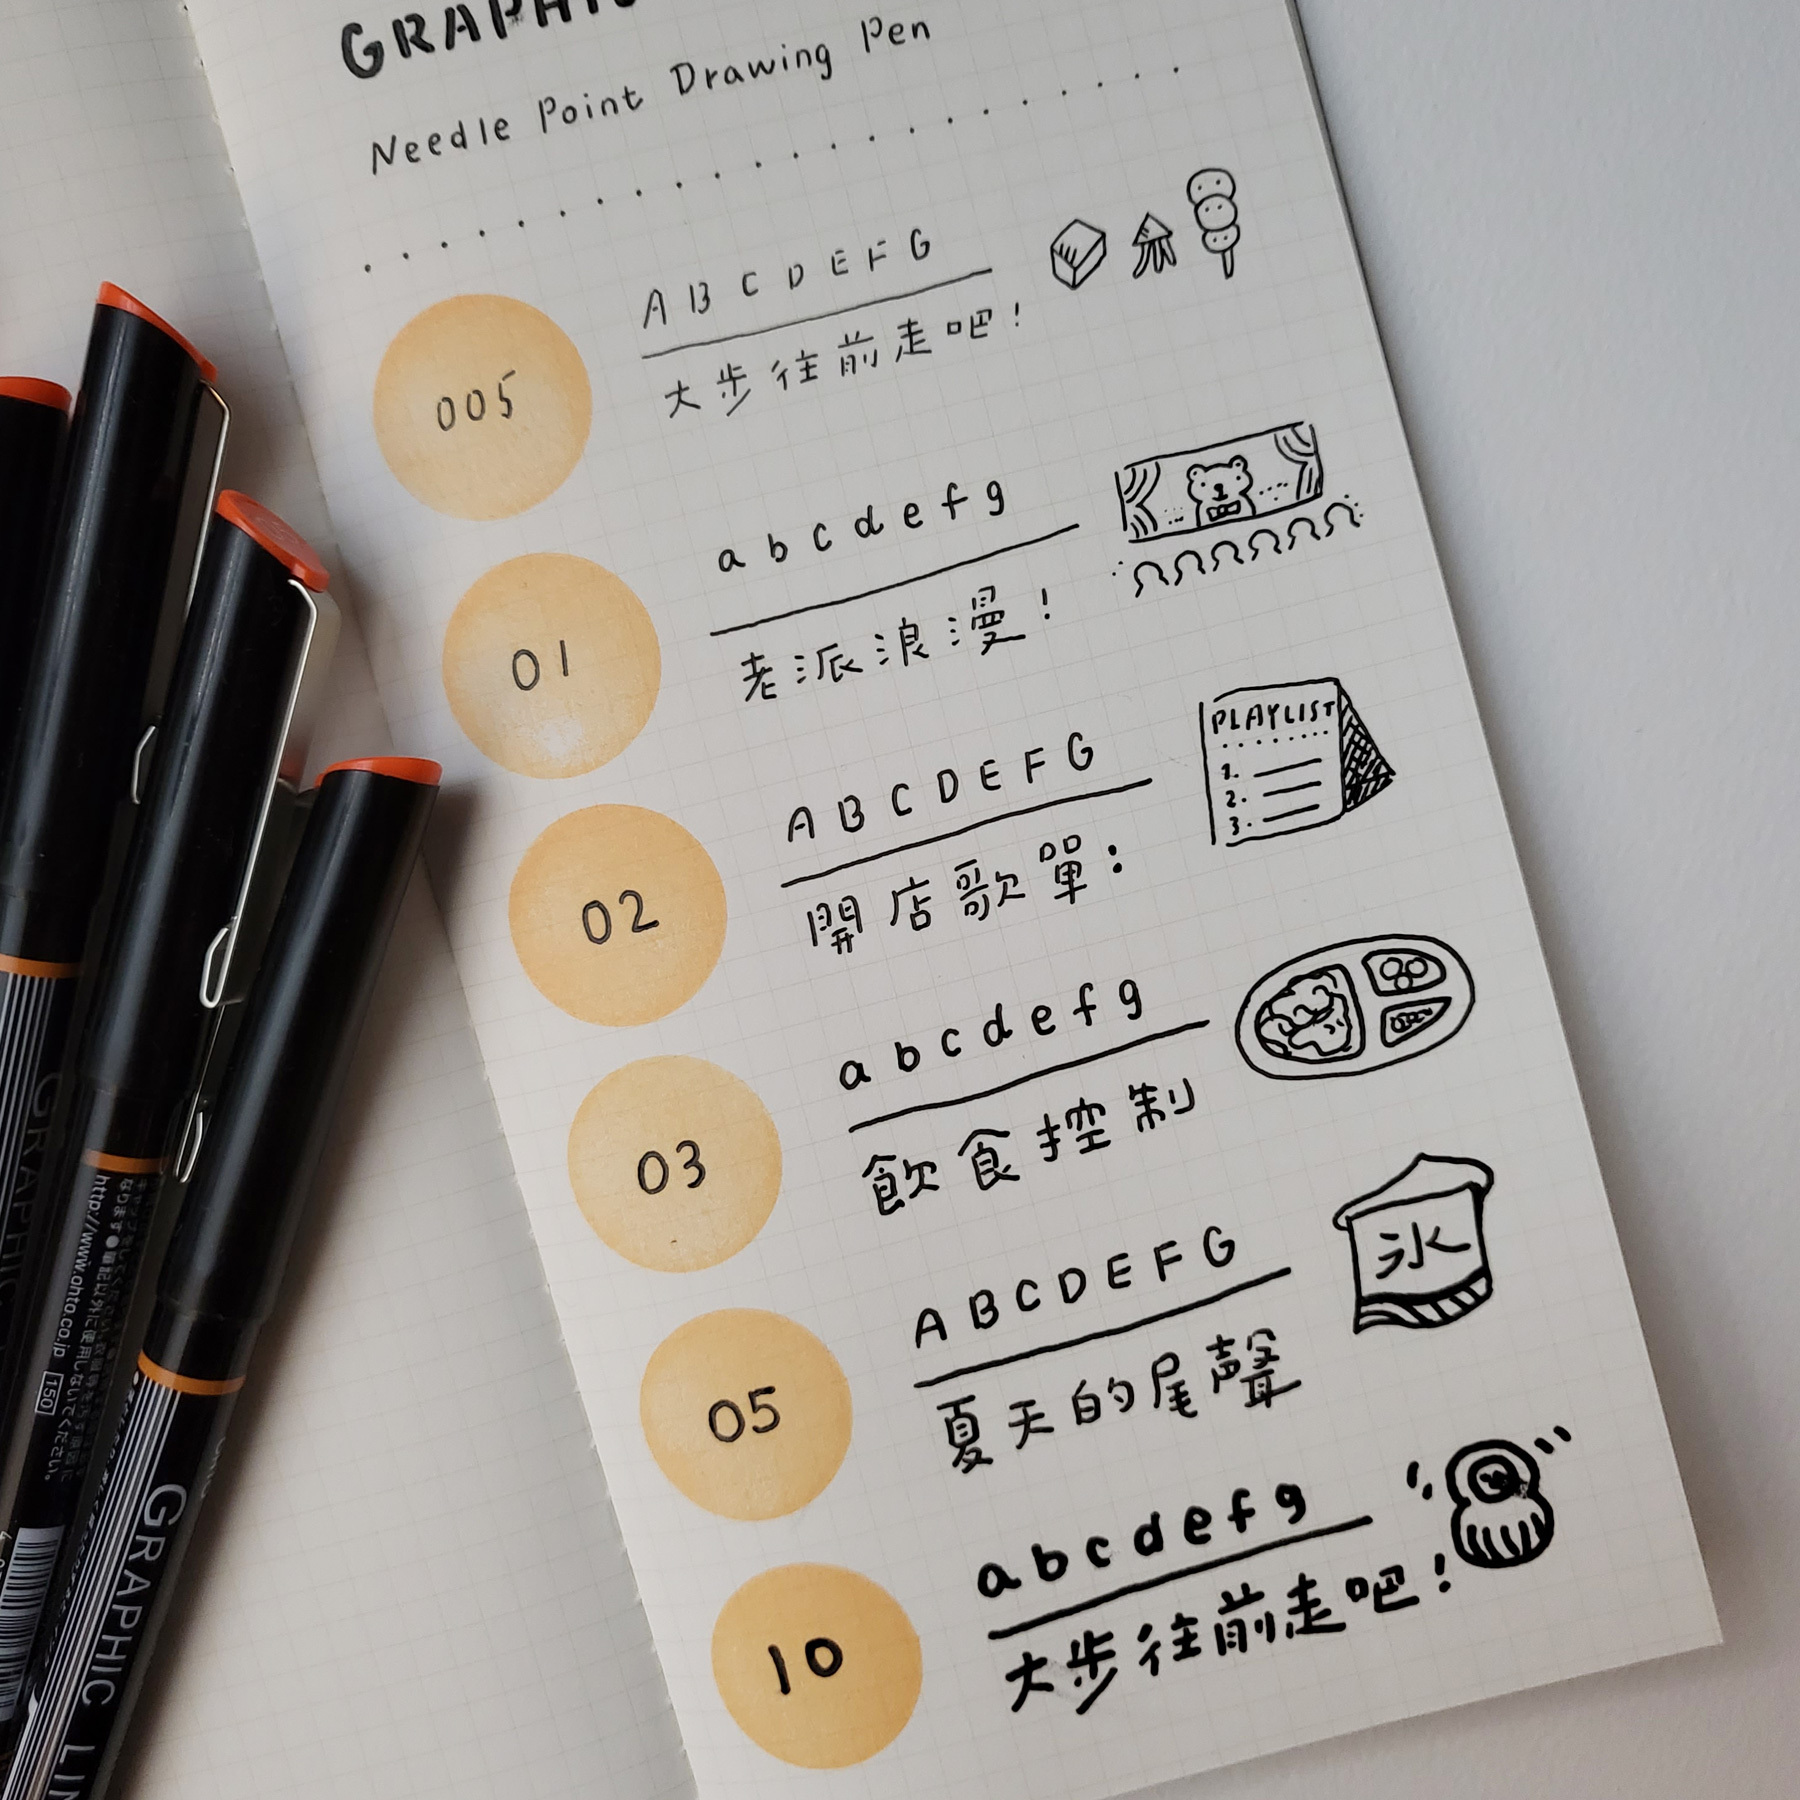 GRAPHIC
Needle Point Drawing Pen
005
A B C D E F G
大步往前走吧!
01
a b c d e f g
老派浪漫!
02
A B C D E F G
開店歌單:
PLAYLIST
1.
2.
3.
03
a b c d e f g
飲食控制
05
A B C D E F G
夏天的尾聲
氷
10
a b c d e f g
大步往前走吧!
GRAPHIC
http://www.ohto.co.jp 150
GRAPHIC LIN